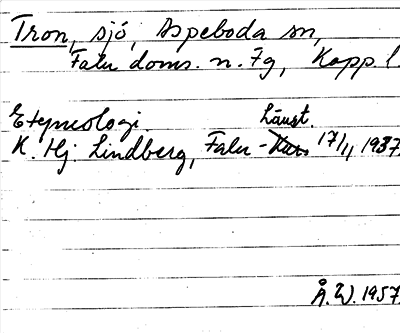 Tron, sjö, Aspeboda sn,
Falu doms. n. Fg, Kopp l
Etymologi
Länst.
K. Hj. Lindberg, Falu - Kur. 17/11 1937
Å.W. 1957